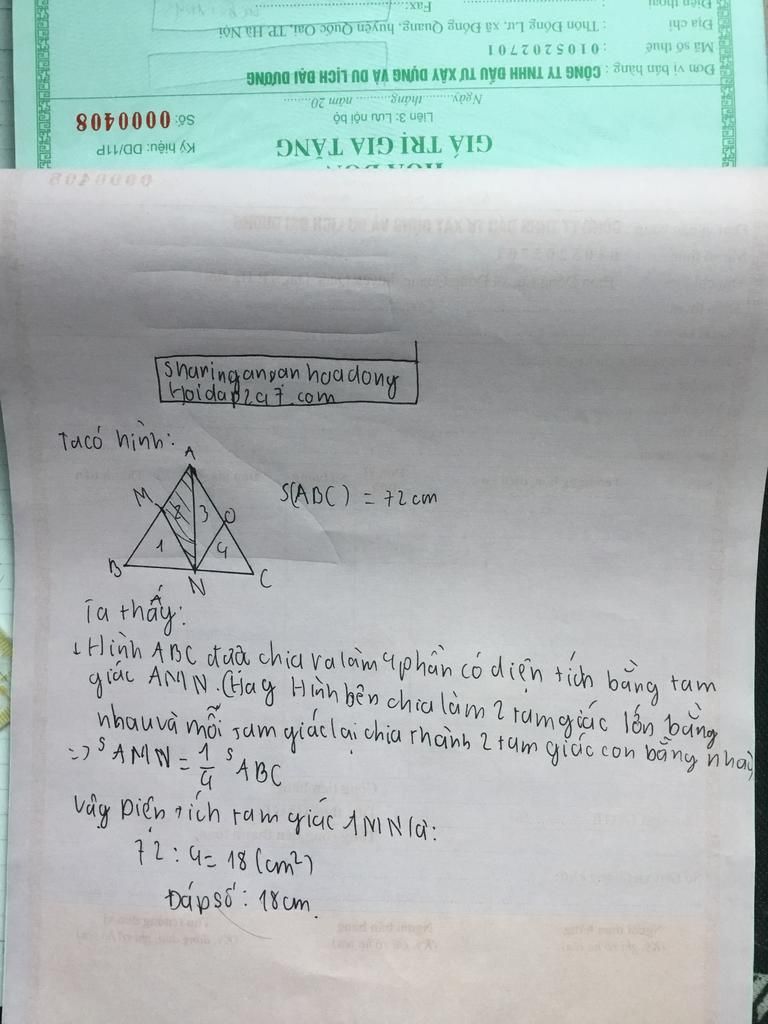 Điện thoại Fax:
Địa chỉ : Thôn Đồng Lư, xã Đồng Quang, huyện Quốc Oai, TP Hà Nội
Mã số thuế : 0105202701
Đơn vị bán hàng : CÔNG TY TNHH ĐẦU TƯ XÂY DỰNG VÀ DU LỊCH ĐẠI DƯƠNG
Ngày........tháng.......... năm 20........
Liên 3: Lưu nội bộ
Số: 0000408
GIÁ TRỊ GIA TĂNG
Ký hiệu: DD/11P
sharinganganhoadong
Hoidap247.com
Ta có hình:
A
M 2 3 O S(ABC) = 72cm
1 4
B N C
Ta thấy:
Hình ABC được chia ra làm 4 phần có diện tích bằng tam
giác AMN. (Hay Hình bên chia làm 2 tam giác lớn bằng
nhau và mỗi tam giác lại chia thành 2 tam giác con bằng nhau)
=> S AMN = 1/4 S ABC
Vậy Diện tích tam giác AMN là:
72 : 4 = 18 (cm²)
Đáp số : 18cm.